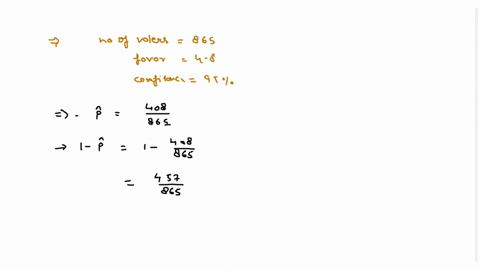 ⇒ no of voters = 865
favor = 408
confiten = 95%
⇒ . p̂ = 408/865
→ 1 - p̂ = 1 - 408/865
= 457/865